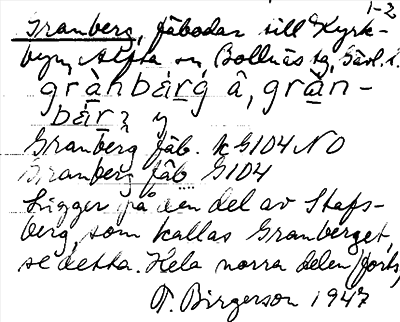 1-2
Granberg, fäbodar till Kyrk-
byn, Alfta sn, Bollnäs tg, Gävl. l.
grànbárg â, gràn-
bár y
Granberg fäb. k G104 NO
Granberg fäb G104
Ligger på den del av Stafs-
berg, som kallas Granberget,
se detta. Hela norra delen (forts,
T. Birgerson 1947